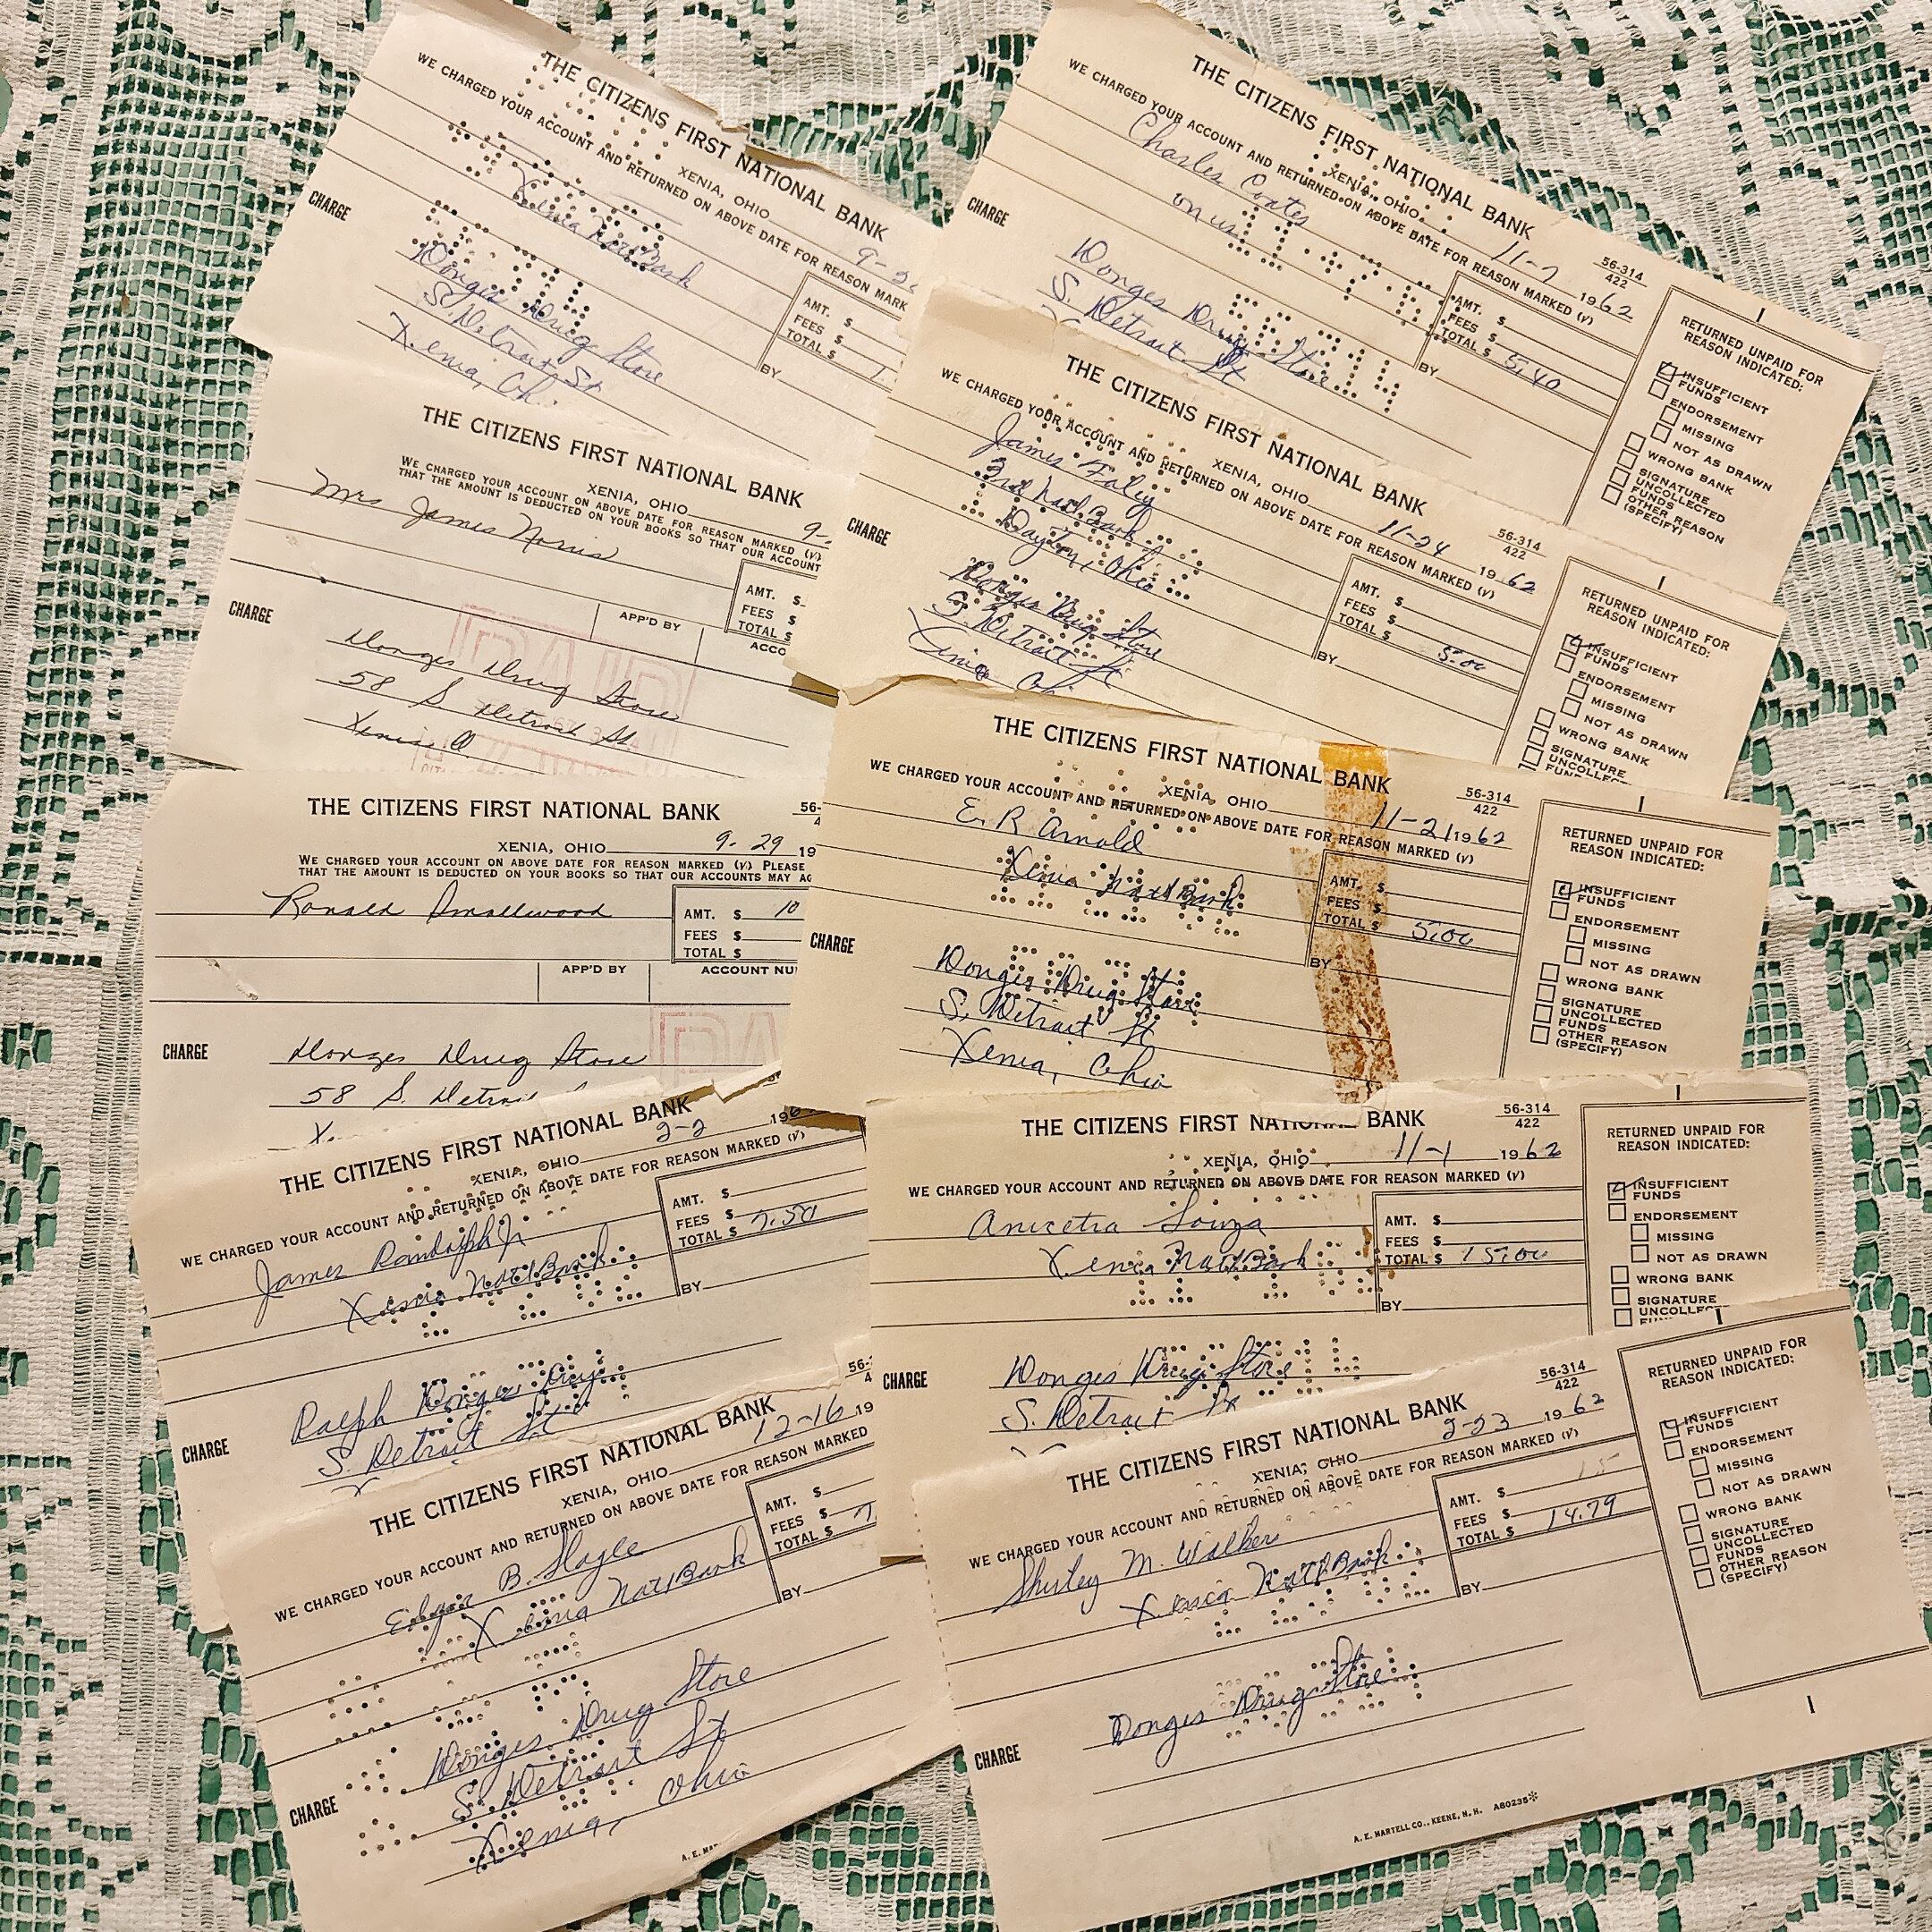 THE CITIZENS FIRST NATIONAL BANK
XENIA, OHIO
WE CHARGED YOUR ACCOUNT AND RETURNED ON ABOVE DATE FOR REASON MARK
Xenia Natl Bank
AMT. $
FEES $
TOTAL $
BY
CHARGE
Donges Drug Store
S. Detroit St
Xenia, Oh
THE CITIZENS FIRST NATIONAL BANK
56-314
422
XENIA, OHIO 11-7 1962
WE CHARGED YOUR ACCOUNT AND RETURNED ON ABOVE DATE FOR REASON MARKED (√)
Charles Coates
on us
AMT. $
FEES $
TOTAL $ 5.40
BY
CHARGE
Donges Drug Store
S. Detroit St
RETURNED UNPAID FOR
REASON INDICATED:
INSUFFICIENT
FUNDS
ENDORSEMENT
MISSING
NOT AS DRAWN
WRONG BANK
SIGNATURE
UNCOLLECTED
FUNDS
OTHER REASON
(SPECIFY)
THE CITIZENS FIRST NATIONAL BANK
XENIA, OHIO 9-
WE CHARGED YOUR ACCOUNT ON ABOVE DATE FOR REASON MARKED (√)
THAT THE AMOUNT IS DEDUCTED ON YOUR BOOKS SO THAT OUR ACCOUNT
Mrs James Norris
AMT. $
FEES $
TOTAL $
APP'D BY
ACCO
PAID
CHARGE
Donges Drug Store
58 S Detroit St.
Xenia O
THE CITIZENS FIRST NATIONAL BANK
56-314
422
XENIA, OHIO 11-24 1962
WE CHARGED YOUR ACCOUNT AND RETURNED ON ABOVE DATE FOR REASON MARKED (√)
James Foley
3rd Natl Bank
Dayton, Ohio
AMT. $
FEES $
TOTAL $ 5.00
BY
CHARGE
Donges Drug Store
S. Detroit St.
Xenia Oh
RETURNED UNPAID FOR
REASON INDICATED:
INSUFFICIENT
FUNDS
ENDORSEMENT
MISSING
NOT AS DRAWN
WRONG BANK
SIGNATURE
UNCOLLEC
THE CITIZENS FIRST NATIONAL BANK
56-
4
XENIA, OHIO 9-29 19
WE CHARGED YOUR ACCOUNT ON ABOVE DATE FOR REASON MARKED (√) PLEASE
THAT THE AMOUNT IS DEDUCTED ON YOUR BOOKS SO THAT OUR ACCOUNTS MAY AG
Ronald Smallwood
AMT. $ 10
FEES $
TOTAL $
APP'D BY
ACCOUNT NU
PA
CHARGE
Donges Drug Store
58 S. Detroi
X
THE CITIZENS FIRST NATIONAL BANK
56-314
422
XENIA, OHIO 11-21 1962
WE CHARGED YOUR ACCOUNT AND RETURNED ON ABOVE DATE FOR REASON MARKED (√)
E. R Arnold
Xenia Natl Bank
AMT. $
FEES $
TOTAL $ 5.00
BY
CHARGE
Donges Drug Store
S. Detroit St
Xenia, Ohio
RETURNED UNPAID FOR
REASON INDICATED:
INSUFFICIENT
FUNDS
ENDORSEMENT
MISSING
NOT AS DRAWN
WRONG BANK
SIGNATURE
UNCOLLECTED
FUNDS
OTHER REASON
(SPECIFY)
THE CITIZENS FIRST NATIONAL BANK
XENIA, OHIO 2-2 196
WE CHARGED YOUR ACCOUNT AND RETURNED ON ABOVE DATE FOR REASON MARKED (√)
James Randolph Jr
Xenia Natl Bank
AMT. $
FEES $
TOTAL $ 7.50
BY
CHARGE
Ralph Donges Drug
S. Detroit St
THE CITIZENS FIRST NATIONAL BANK
56-314
422
XENIA, OHIO 11-1 1962
WE CHARGED YOUR ACCOUNT AND RETURNED ON ABOVE DATE FOR REASON MARKED (√)
Anicetra Souza
Xenia Natl Bank
AMT. $
FEES $
TOTAL $ 15.00
BY
CHARGE
Donges Drug Store
S. Detroit St
RETURNED UNPAID FOR
REASON INDICATED:
INSUFFICIENT
FUNDS
ENDORSEMENT
MISSING
NOT AS DRAWN
WRONG BANK
SIGNATURE
UNCOLLEC
THE CITIZENS FIRST NATIONAL BANK
56-
4
XENIA, OHIO 12-16 19
WE CHARGED YOUR ACCOUNT AND RETURNED ON ABOVE DATE FOR REASON MARKED
Edgar B. Slagle
Xenia Natl Bank
AMT. $
FEES $
TOTAL $ 7
BY
CHARGE
Donges Drug Store
S. Detroit St
Xenia, Ohio
A. E. MAR
THE CITIZENS FIRST NATIONAL BANK
56-314
422
XENIA, OHIO 2-23 1962
WE CHARGED YOUR ACCOUNT AND RETURNED ON ABOVE DATE FOR REASON MARKED (√)
Shirley M. Walker
Xenia Natl Bank
AMT. $ 15
FEES $
TOTAL $ 14.79
BY
CHARGE
Donges Drug Store
RETURNED UNPAID FOR
REASON INDICATED:
INSUFFICIENT
FUNDS
ENDORSEMENT
MISSING
NOT AS DRAWN
WRONG BANK
SIGNATURE
UNCOLLECTED
FUNDS
OTHER REASON
(SPECIFY)
A. E. MARTELL CO., KEENE, N. H. A60235